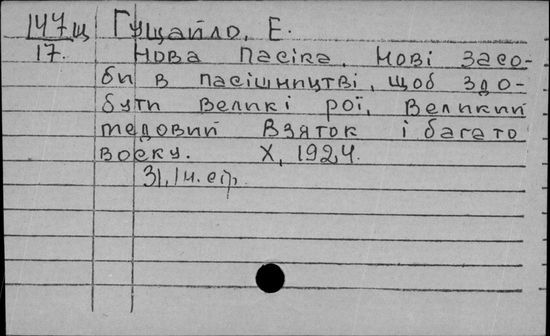 147щ Гущайло, Е.
17. Нова Пасіка. Нові засо-
би в пасішництві, щоб здо-
бути великі рої, Великий
медовий Взяток і багато
воску. Х, 1924.
31, 1 н. стр.